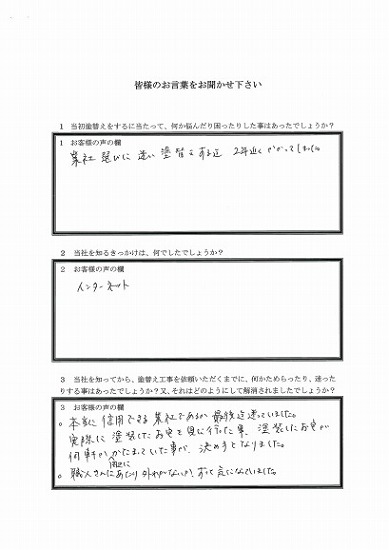 皆様のお言葉をお聞かせ下さい
1 当初塗替えをするに当たって、何か悩んだり困ったりした事はあったでしょうか？
1 お客様の声の欄
業社選びに迷い塗替えする迄 2年近くかかってしまった。
2 当社を知るきっかけは、何でしたでしょうか？
2 お客様の声の欄
インターネット
3 当社を知ってから、塗替え工事を依頼いただくまでに、何かためらったり、迷った
りする事はあったでしょうか？又、それはどのようにして解消されましたでしょうか？
3 お客様の声の欄
○本当に信用できる業社であるか最後迄迷っていました。
実際に塗装したお宅を見に行った事、塗装したお宅が
何軒かかたまっていた事が、決め手となりました。
○職人さんにあたり外れがないか、ずっと気になっていました。